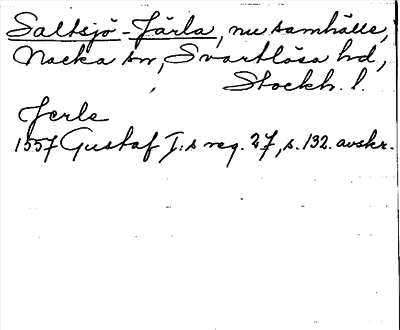 Saltsjö-Järla, nu samhälle,
Nacka sn, Svartlösa hd,
Stockh. l.
Jerle
1557 Gustaf I:s reg. 27, s. 132. avskr.